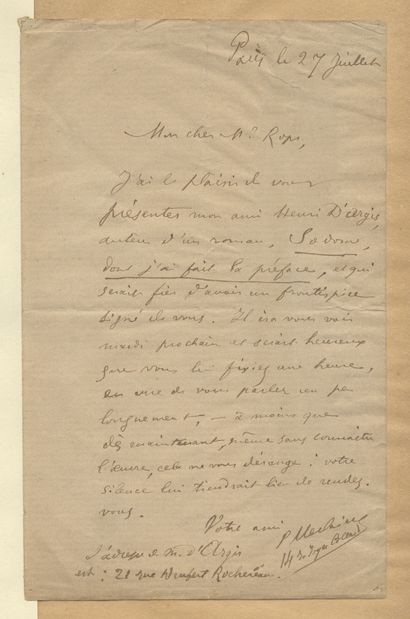 Paris le 27 Juillet
Mon cher Mr Rops,
J'ai le plaisir de vous
présenter mon ami Henri D'argis,
auteur d'un roman, Sodome,
dont j'ai fait la préface, et qui
serait fier d'avoir un frontispice
signé de vous. Il ira vous voir
mardi prochain et serait heureux
que vous lui fixiez une heure,
en vue de vous parler un peu
longuement, — à moins que
dès maintenant, même sans connaître
l'œuvre, cela ne vous dérange : votre
silence lui tiendrait lieu de rendez-
vous.
Votre ami
P Verlaine
14 r.
L'adresse de M. d'Argis
est : 21 rue Denfert Rochereau.